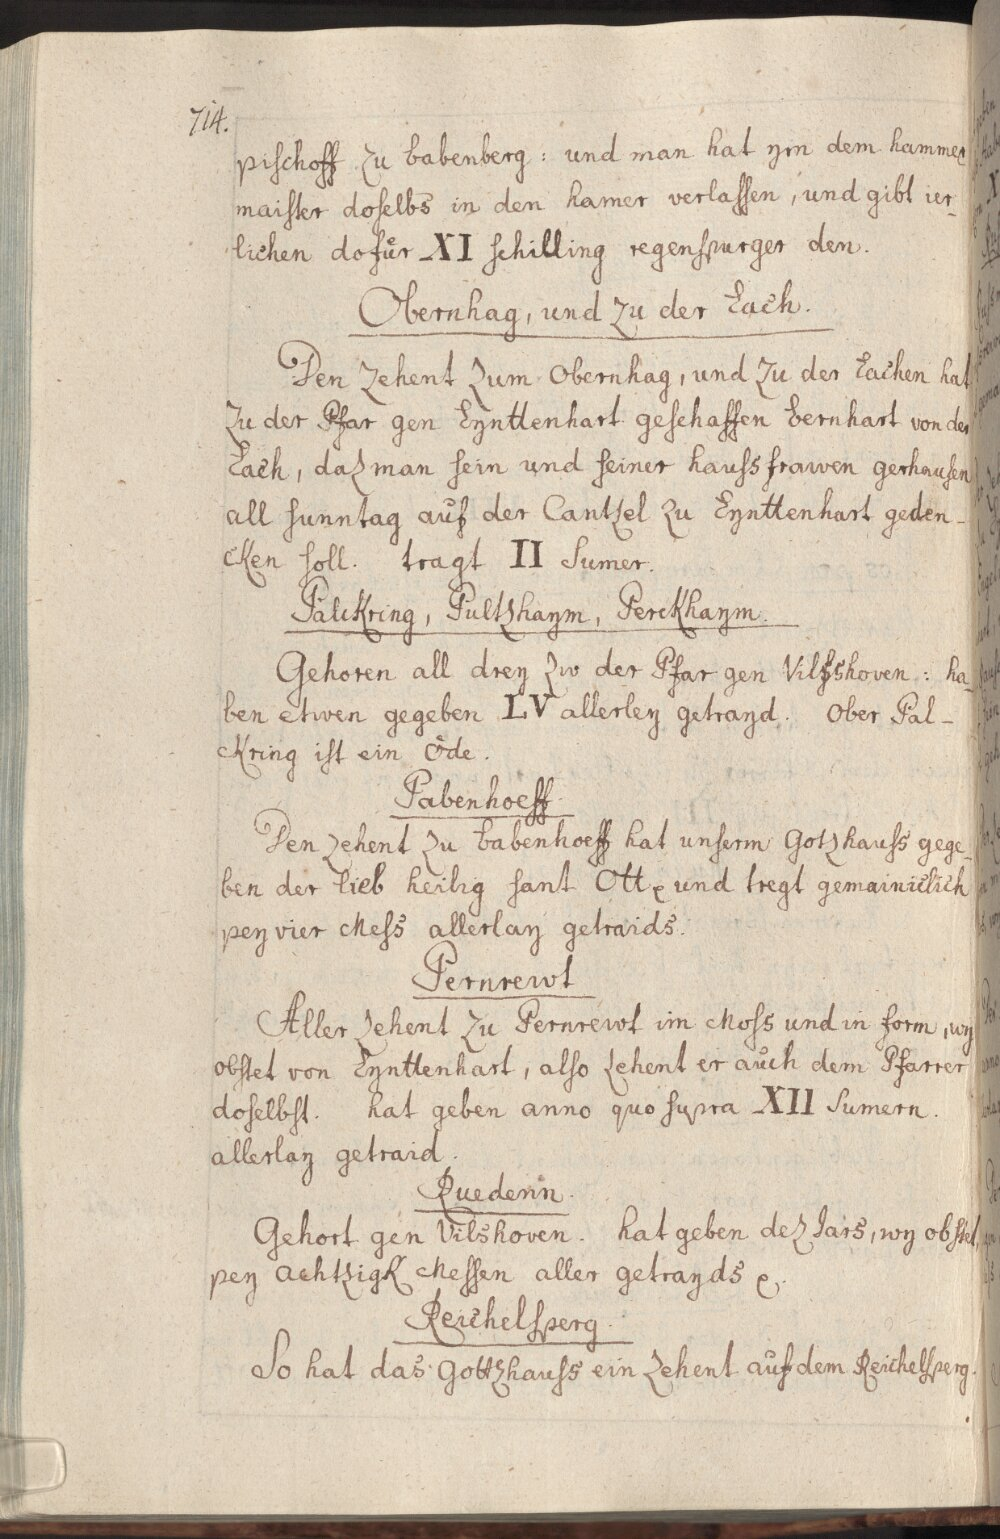 714.
pischoff zu babenberg : und man hat ym dem hammer
maister doselbs in den hamer verlassen, und gibt ier-
lichen dofůr XI schilling regenspurger den.
Obernhag, und zu der Each.
Den zehent zum Obernhag, und zu der Eachen hat
zu der Pfar gen Eynttenhart geschaffen Eernhart von der
Each, daz man sein und seiner haussfrawen gerhausen
all sunntag auf der Cantzel zu Eynttenhart geden-
cken soll. tragt II Sumer.
Palckring, Pultzhaym, Perckhaym.
Gehoren all drey zw der Pfar gen Vilßshoven : ha-
ben etwen gegeben LV allerley getrayd. Ober Pal-
ckring ist ein öde.
Pabenhoeff.
Den zehent zu babenhoeff hat unserm Gotzhauss gege-
ben der lieb heilig sant Ott und tregt gemainiclich
pey vier Mess allerlay getraids.
Pernrewt
Aller zehent zu Pernrewt im Moss und in form, wy
obstet von Eynttenhart, also zehent er auch dem Pfarrer
doselbst. hat geben anno quo supra XII Sumern.
allerlay getraid.
Ruedenn.
Gehort gen Vilshoven. hat geben dez Jars, wy obstet,
pey achtzigk Messen aller getrayds
Reichelsperg.
So hat das Gottzhauss ein zehent auf dem Reichelsperg.